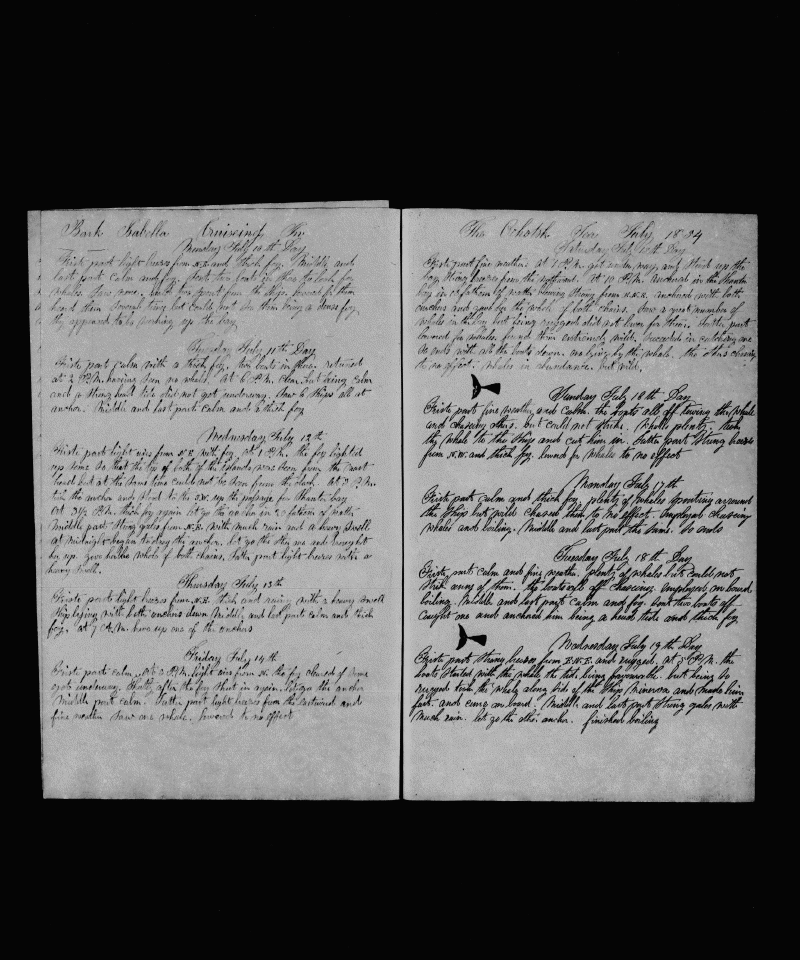 Bark Isabella Cruiseing In
Monday July 10th Day
Firste part light airs from N.E. and thick fog. Middle and
last part calm and fog.
whales saw none.
heard them lowered twice but could not see them being a dense fog
they appeared to be working up the bay
Tuesday July 11th Day
Firste parts Calm with a thick fog. two boats in shore returned
at 3 P.M. haveing seen no whales. At 6 P.M. clear, but being calm
and a strong ebb tide did not get underway. Saw 6 Ships all at
anchor. Middle and last parts calm and a thick fog
Wednesday July 12th
Firste part light airs from S.E. with fog. at 1 P.M. the fog lighted
up some so that the top of both of the Islands was seen from the mast
head but at the same time could not be seen from the deck. At 2 P.M.
took the anchor and stood to the S.W. up the passage for Shantar bay
At 3½ P.M. thick fog again let go the anchor in 20 fathoms of water
Middle part Strong gales from N.E. with much rain and a heavy swell
at midnight began to drag the anchor. let go the other one and brought
her up. gave her the whole of both chains. latter part light breezes with a
heavy swell.
Thursday July 13th
Firste parts light breezes from N.E. thick and rainy with a heavy swell
Ship lying with both anchors down Middle and last parts calm and thick
fog. at 7 A.M. hove up one of the anchors
Friday July 14th
Firste parts calm. At 3 P.M. light airs from N. the fog cleared of some
got underway. Shortly after the fog shut in again. let go the anchor
Middle part calm. Latter part light breezes from the Eastward and
fine weather saw one whale. lowered to no effect
The Ochotsk Sea July 1854
Saturday July 15th Day
Firste part fine weather. at 1 P.M. got under way and stood up the
bay Strong breezes from the northward. At 10 P.M. Anchored in the Shantar
bay in 13 fathoms of water blowing Strong from N.N.E. anchored with both
anchors and gave her the whole of both chains. Saw a great number of
whales in the bay but being rugged did not lower for them. Latter part
lowered for whales. found them extremely wild. Succeeded in catching one
So ends with all the boats down. one lying by the whale. the others chaseing
to no effect. Whales in abundance. but wild.
Sunday July 16th Day
Firste parts fine weather and Calm. the boats all off towing the whale
and chaseing others. but could not strike. Whales plenty. took
the whale to the Ship and cut him in. Latter part Strong breezes
from N.W. and thick fog. lowered for whales to no effect
Monday July 17th
Firste parts Calm and thick fog. plenty of whales spouting around
the Ship but wild chased them to no effect. Employed chaseing
whales and boiling. Middle and last part the Same. So ends
Tuesday July 18th Day
Firste parts calm and fine weather. plenty of whales but could not
Strike any of them. the boats off Chaseing. Employed on board
boiling. Middle and last parts Calm and fog. Sent two boats off
Caught one and anchored him being a head tide and thick fog
Wednesday July 19th Day
Firste part Strong breezes from E.N.E. and rugged. at 5 P.M. the
boats started with the whale the tide being favourable. but being so
rugged took the whale along side of the Ship Minerva and made him
fast. and came on board. Middle and last part Strong gales with
much rain. let go the other anchor. finished boiling